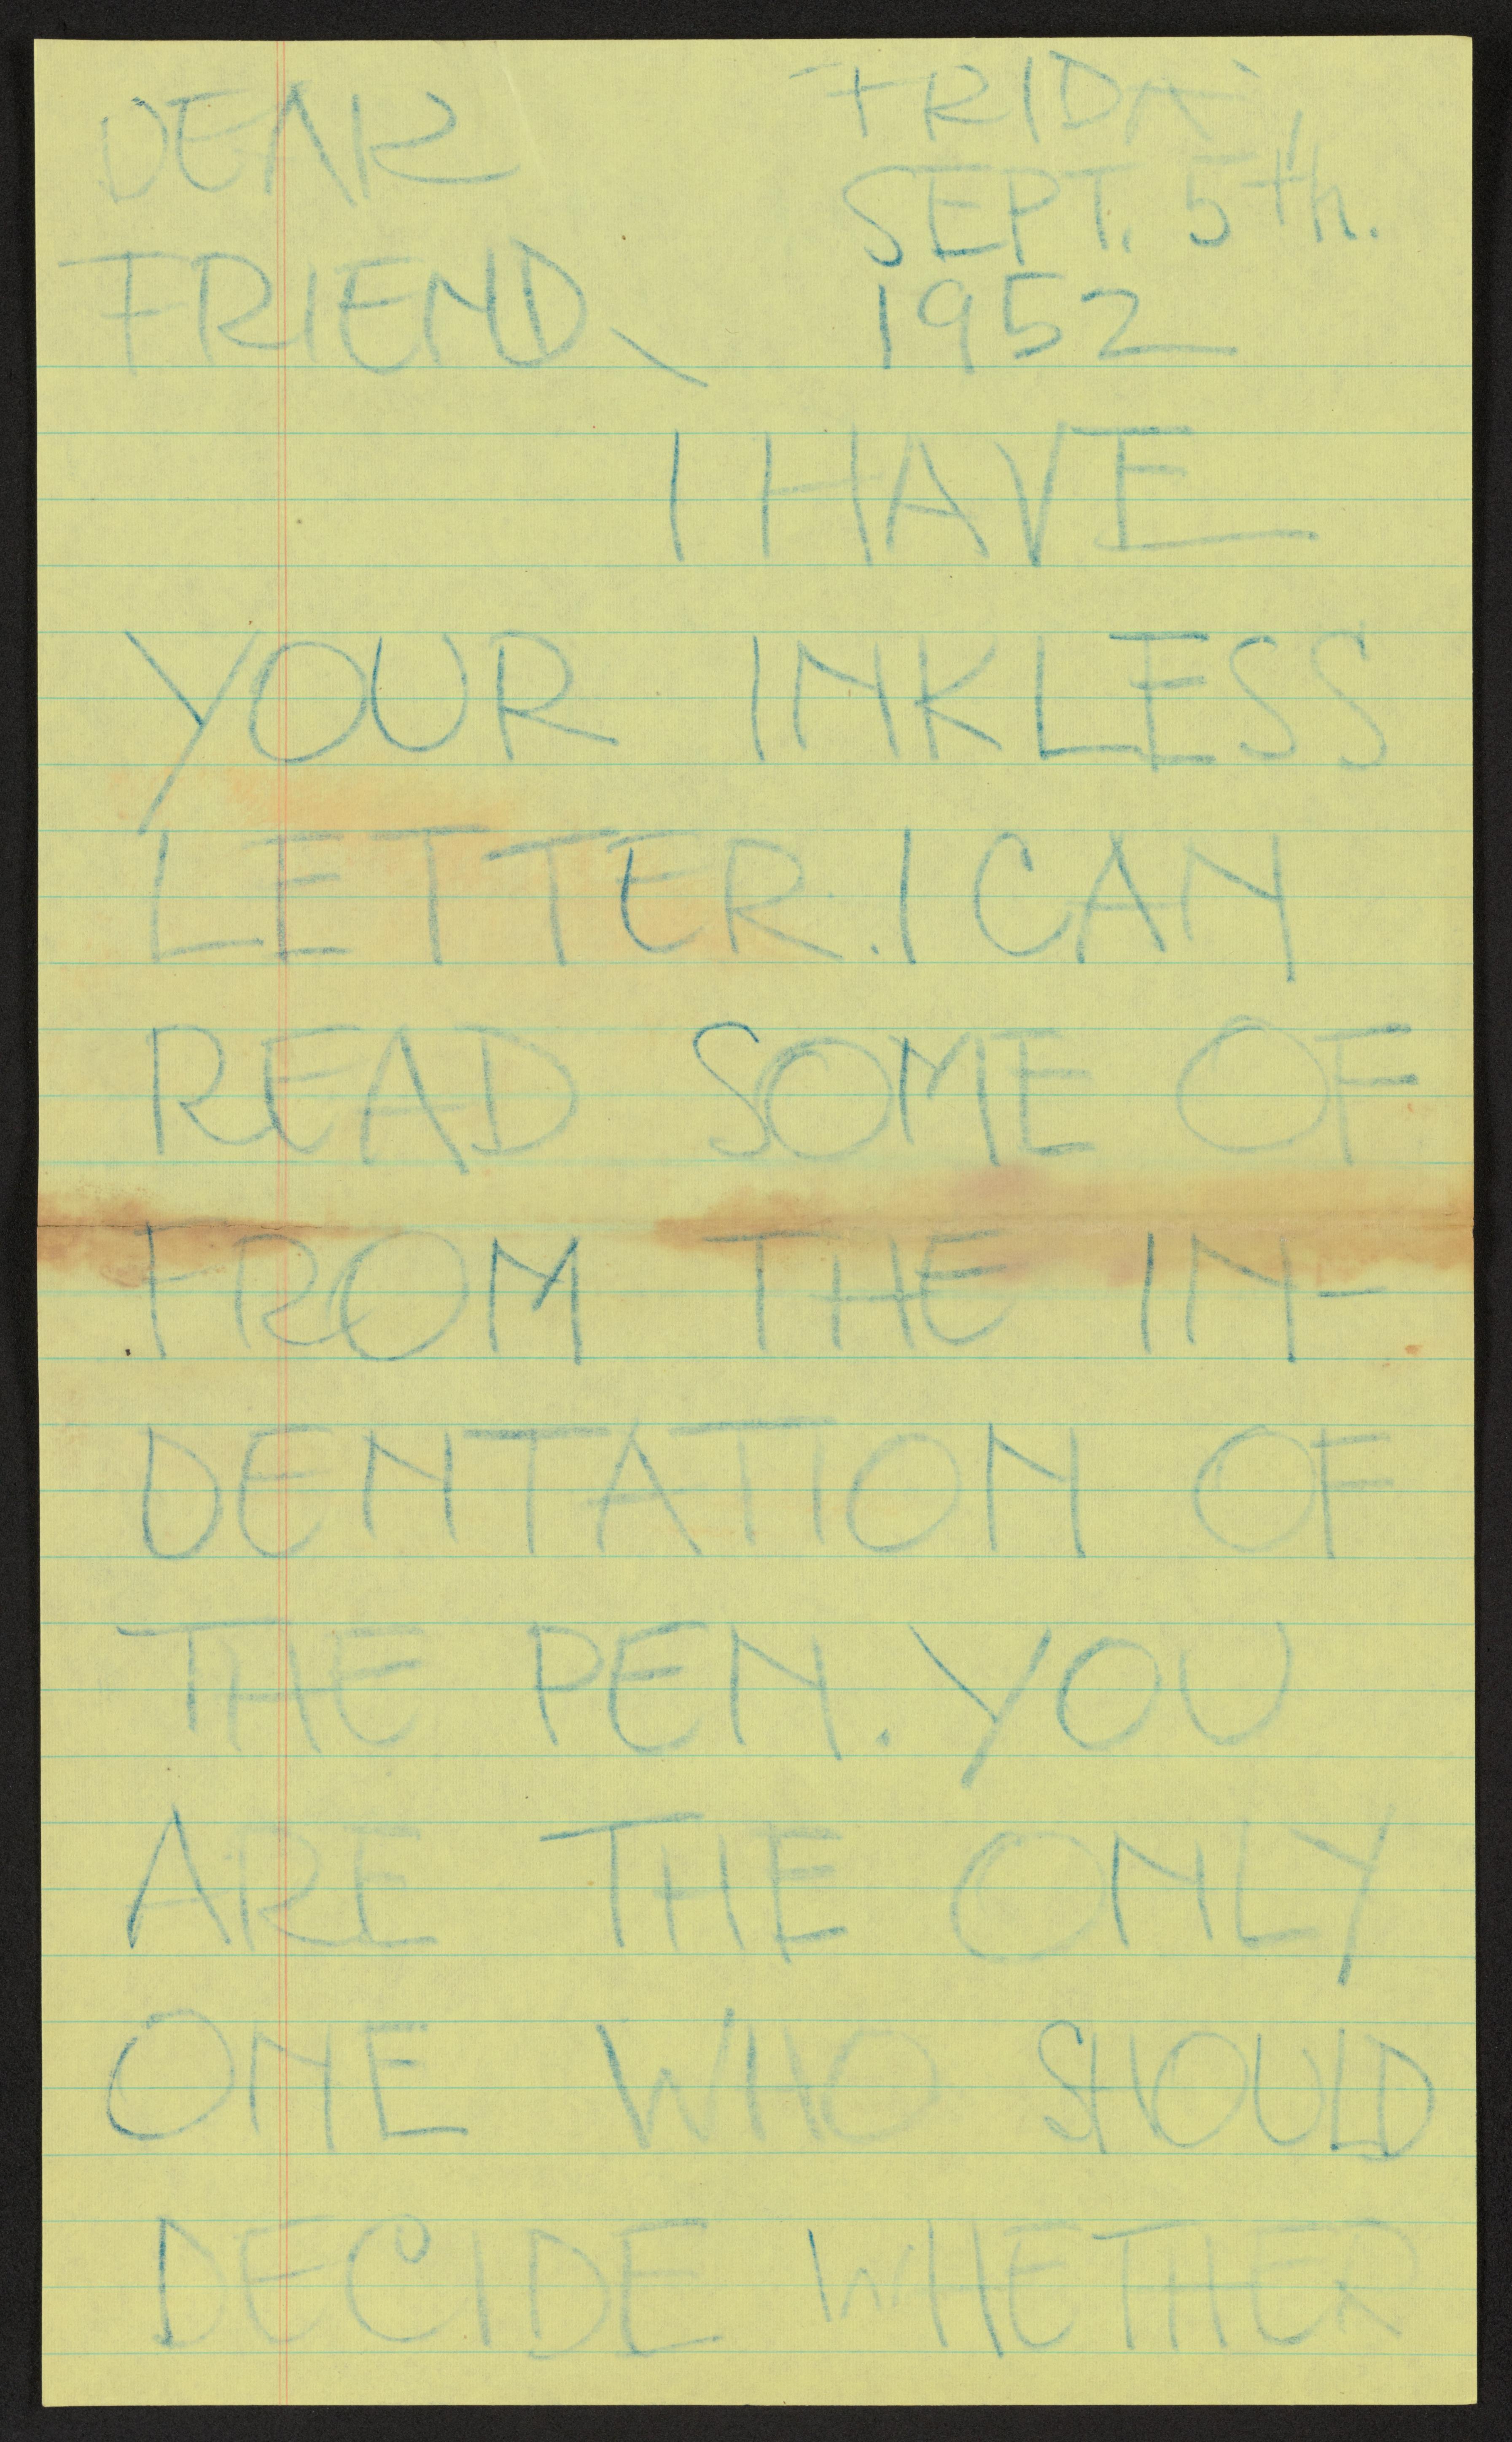 FRIDAY
SEPT. 5th.
1952
DEAR
FRIEND,
I HAVE
YOUR INKLESS
LETTER. I CAN
READ SOME OF
FROM THE IN-
DENTATION OF
THE PEN. YOU
ARE THE ONLY
ONE WHO SHOULD
DECIDE WHETHER